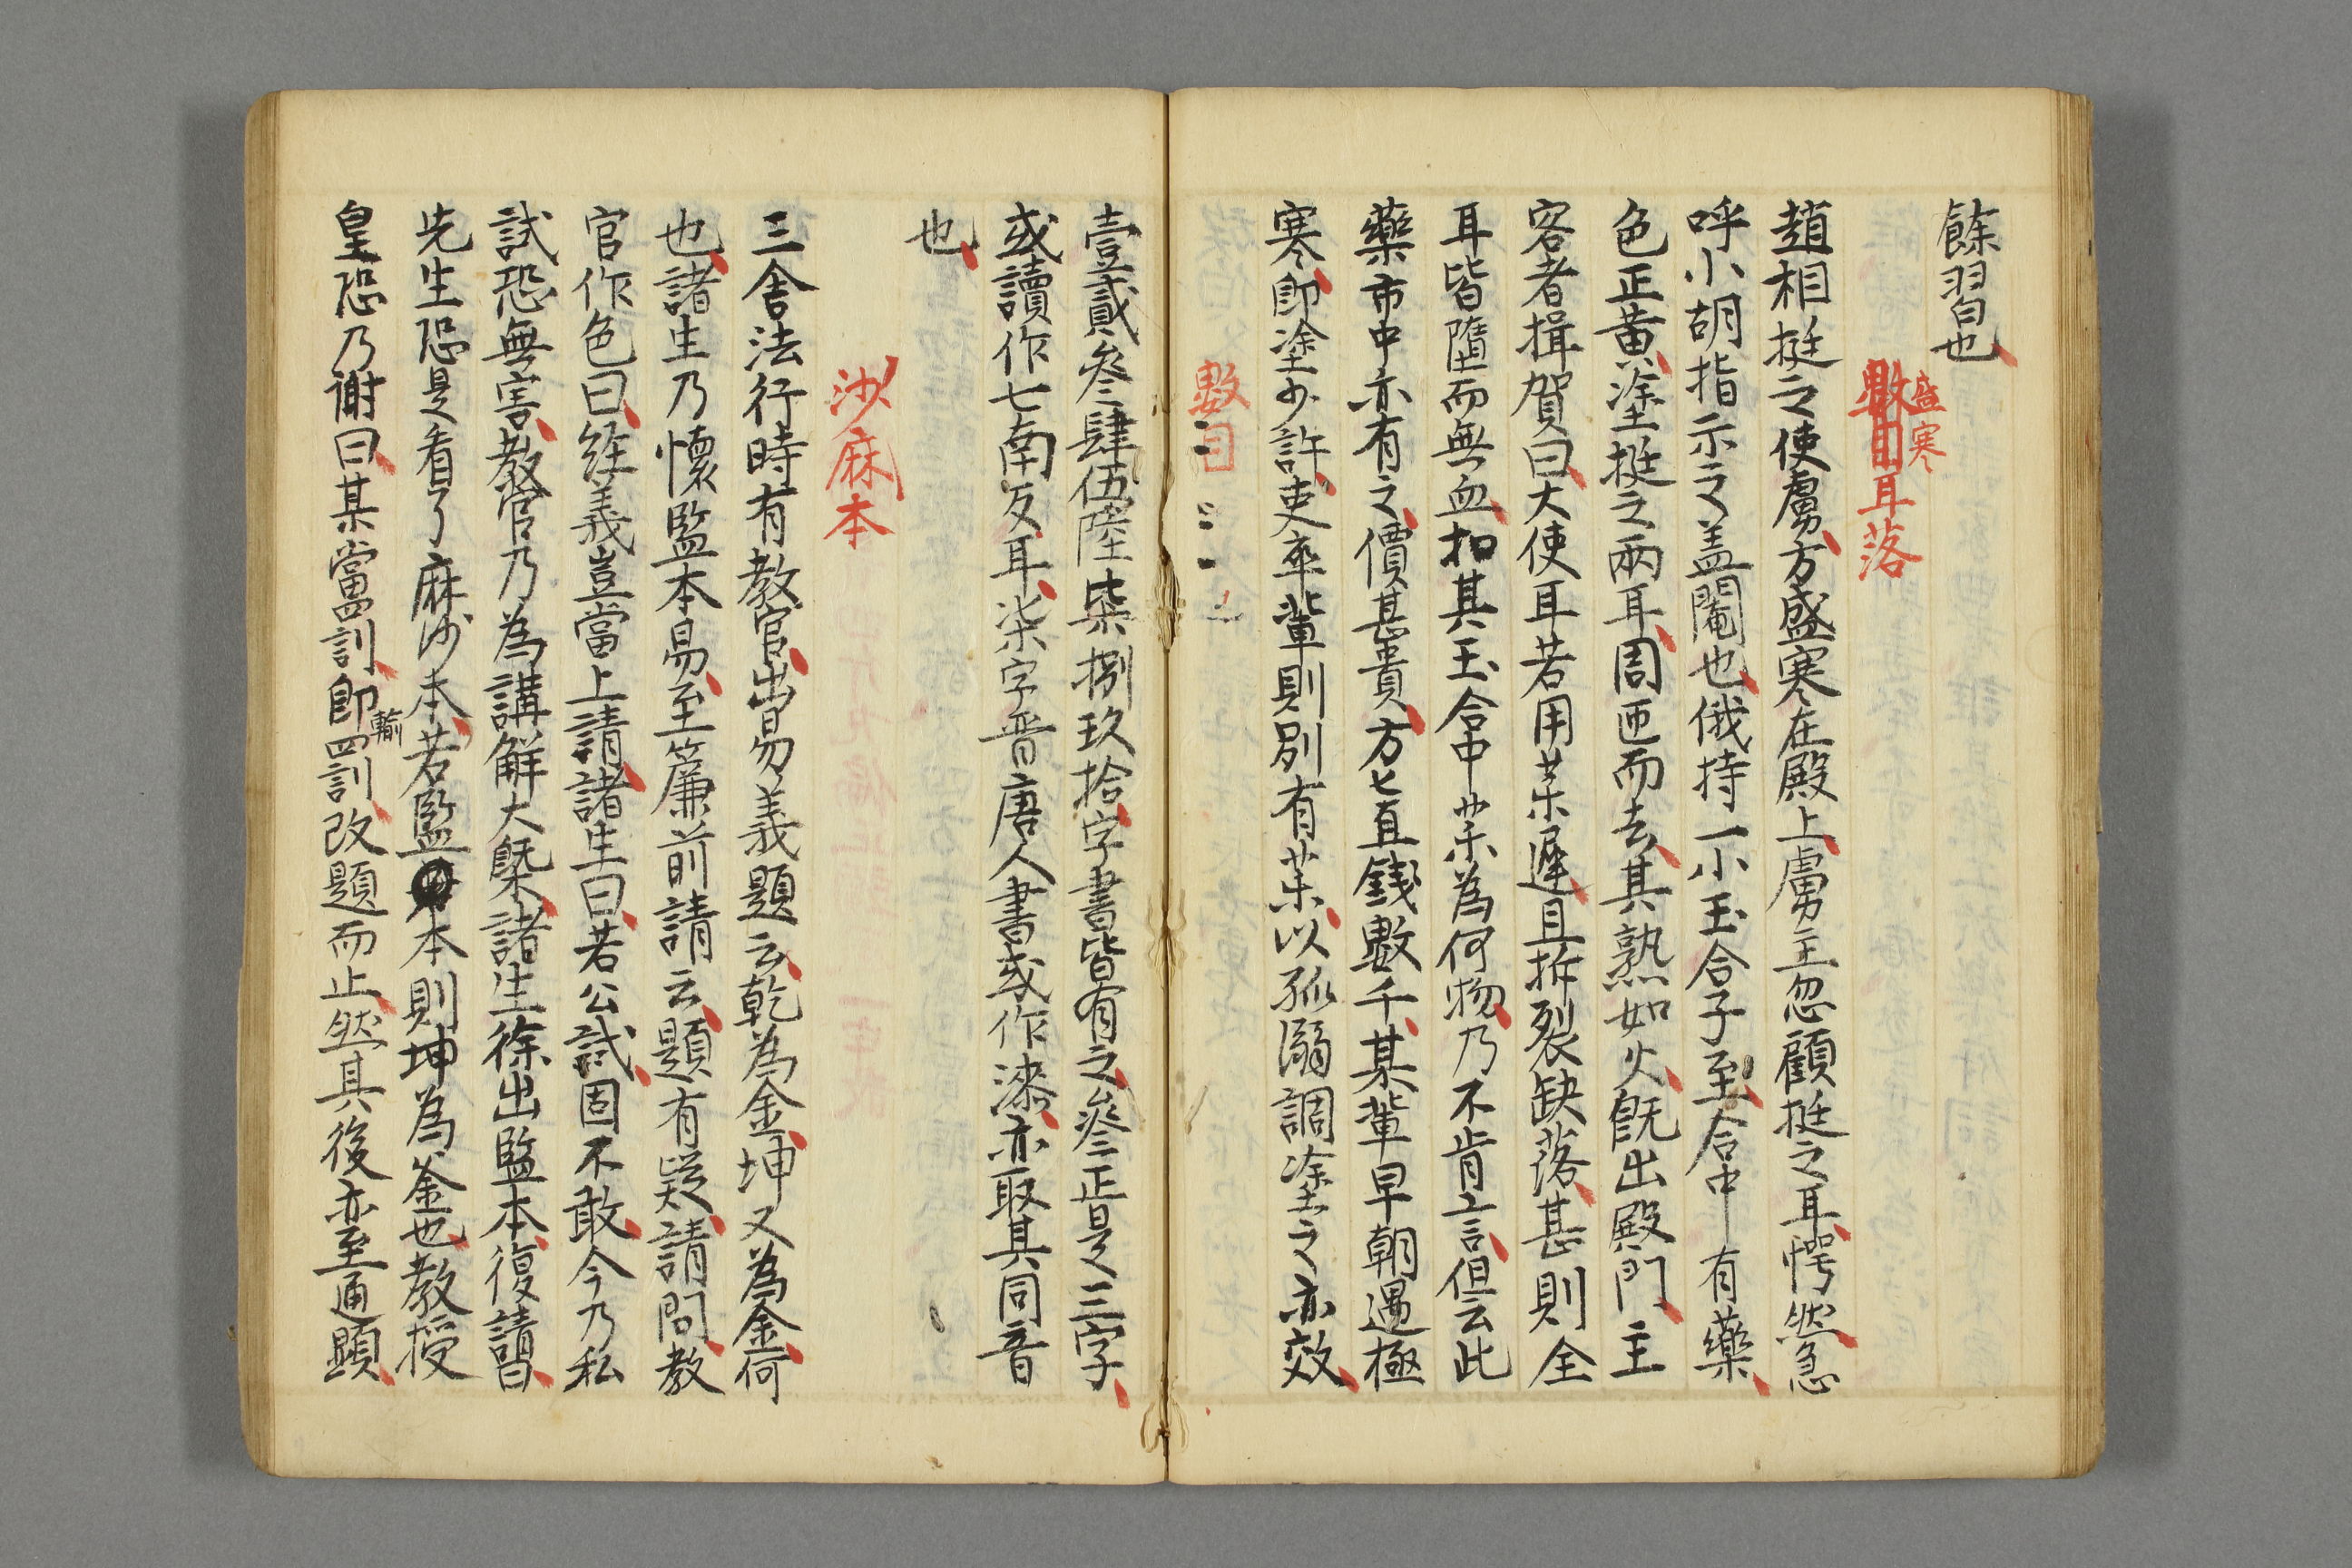 餘習也
盛寒
耳落
趙相挺之使虜方盛寒在殿上虜主忽顧挺之耳愕然急
呼小胡指示之盖閹也俄持一小玉合子至合中有藥
色正黄塗挺之兩耳周匝而去其熱如火既出殿門主
客者揖賀曰大使耳若用茉遲且拆裂缺落甚則全
耳皆墮而無血扣其玉合中茉為何物乃不肯言但云此
藥市中亦有之價甚貴方匕直錢數千某輩早朝遇極
寒即塗少許吏卒輩則別有茉以狐溺調塗之亦效
數目
壹貳叄肆伍陸柒捌玖拾字書皆有之叄正是三字
或讀作七南反耳柒字晋唐人書或作漆亦取其同音
也
沙麻本
三舍法行時有教官出易義題云乾為金坤又為金何
也諸生乃懷監本易至簾前請云題有疑請問教
官作色曰經義豈當上請諸生曰若公試固不敢今乃私
試恐無害教官乃為講解大槩諸生徐出監本復請曰
先生恐是看了麻沙本若監本則坤為釜也教授
皇恐乃謝曰某當罰即
輸
罰改題而止然其後亦至通顯